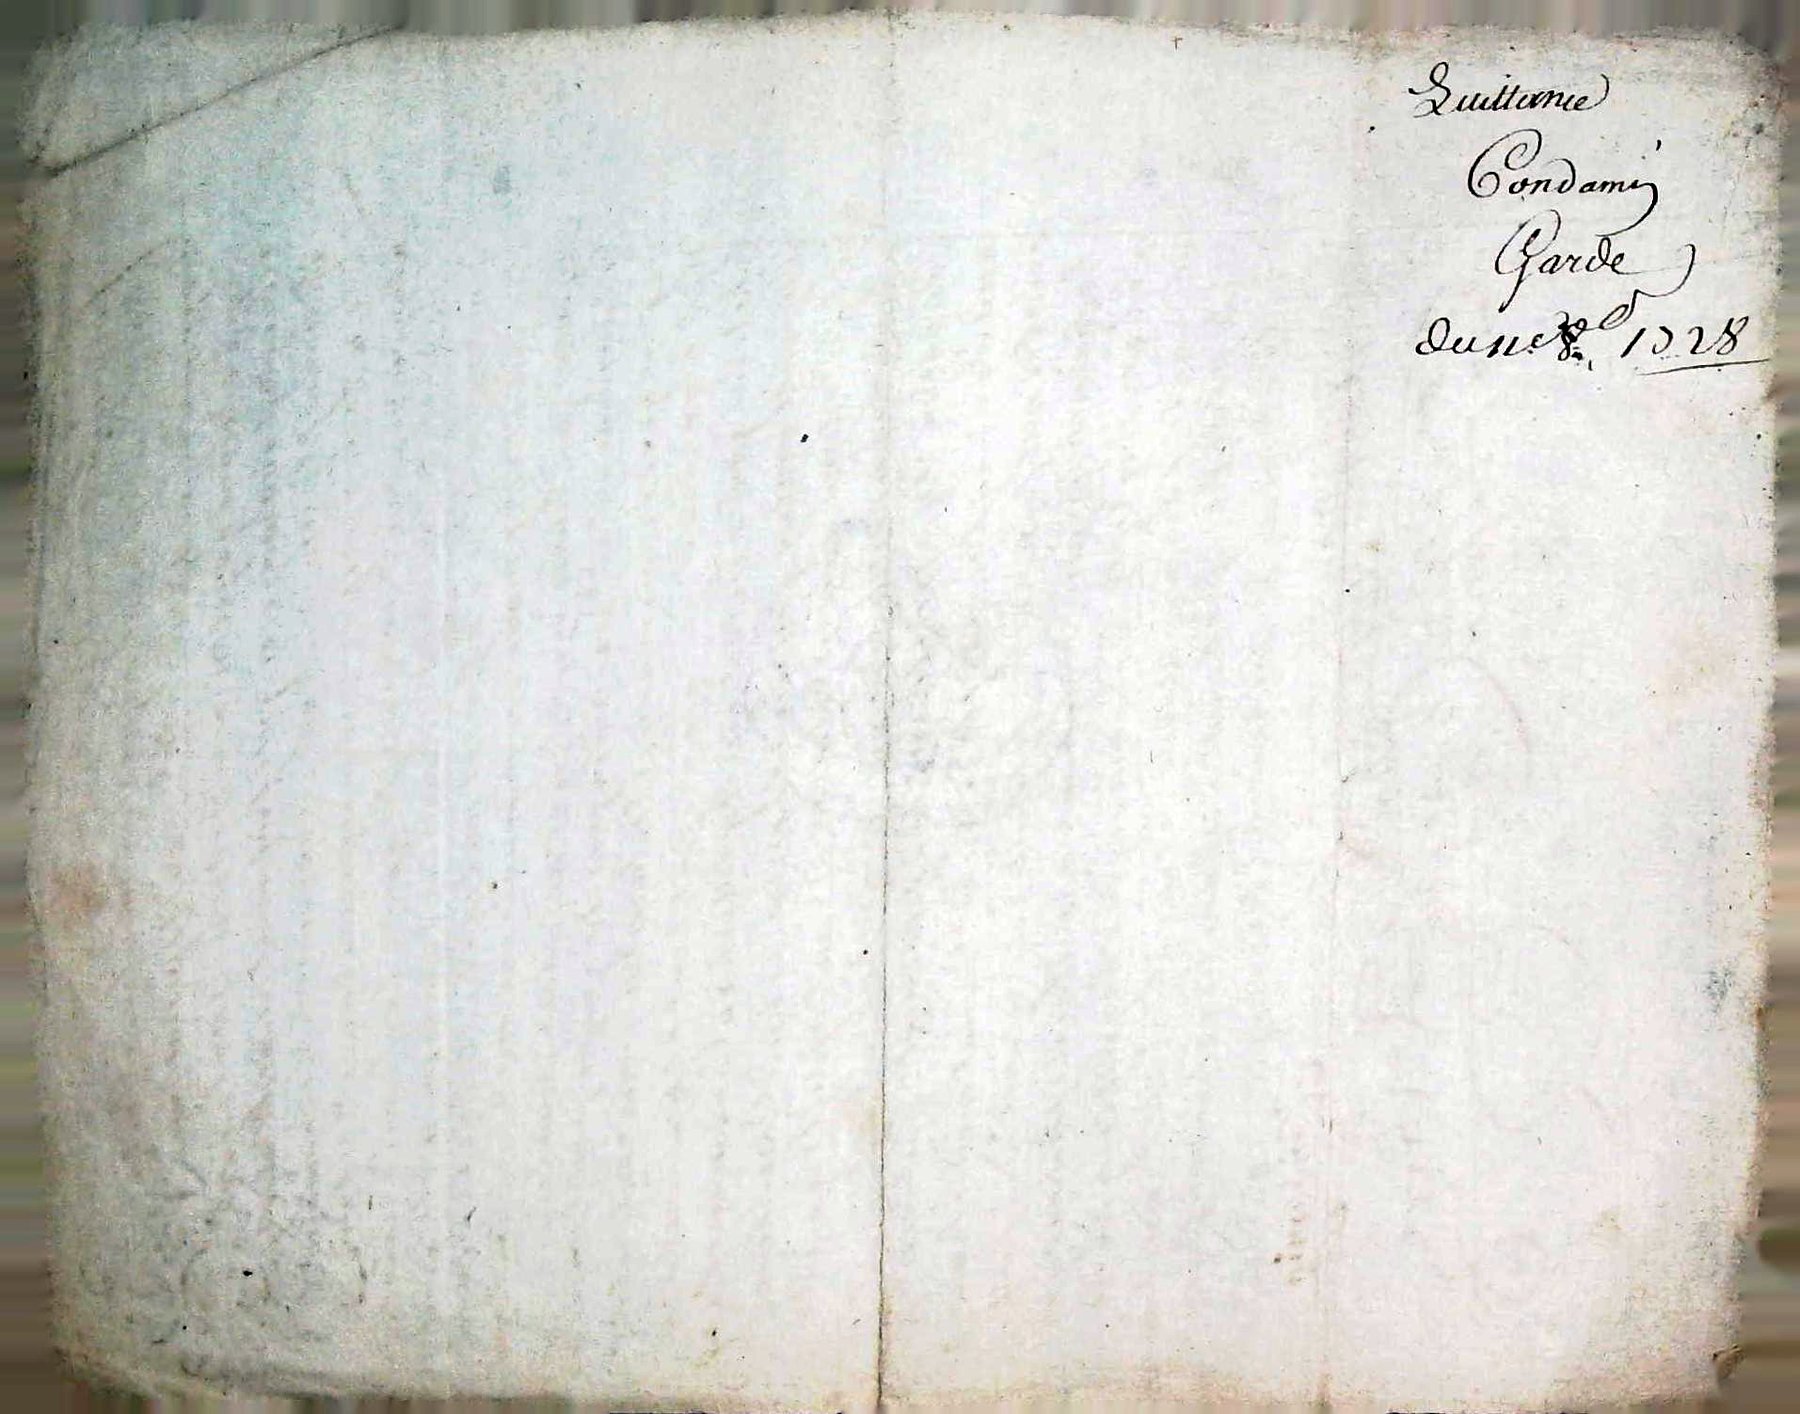 Quittance
Condamin
Garde
du 11e 8bre 1728